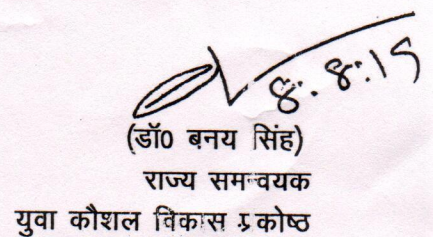 8.8.15
(डॉ0 बनय सिंह)
राज्य समन्वयक
युवा कौशल विकास प्रकोष्ठ